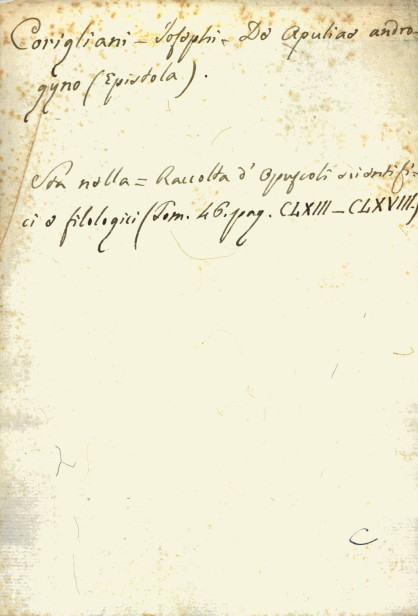 Corigliani = Josephi = De Apuliae andro-
gyno (Epistola).
Sta nella = Raccolta d' Opuscoli scientifi-
ci e filologici (Tom. 46. pag. CLXIII _ CLXVIII.)
C